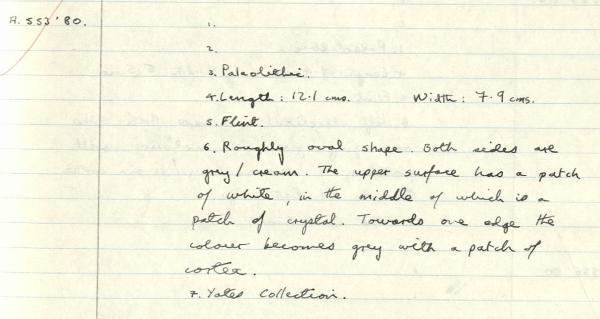 A.553'80.
1.
2.
3. Palaolithic.
4. Length : 12.1 cms. Width : 7.9 cms.
5. Flint.
6. Roughly oval shape. Both sides are
grey / cream. The upper surface has a patch
of white, in the middle of which is a
patch of crystal. Towards one edge the
colour becomes grey with a patch of
cortex.
7. Yates Collection.